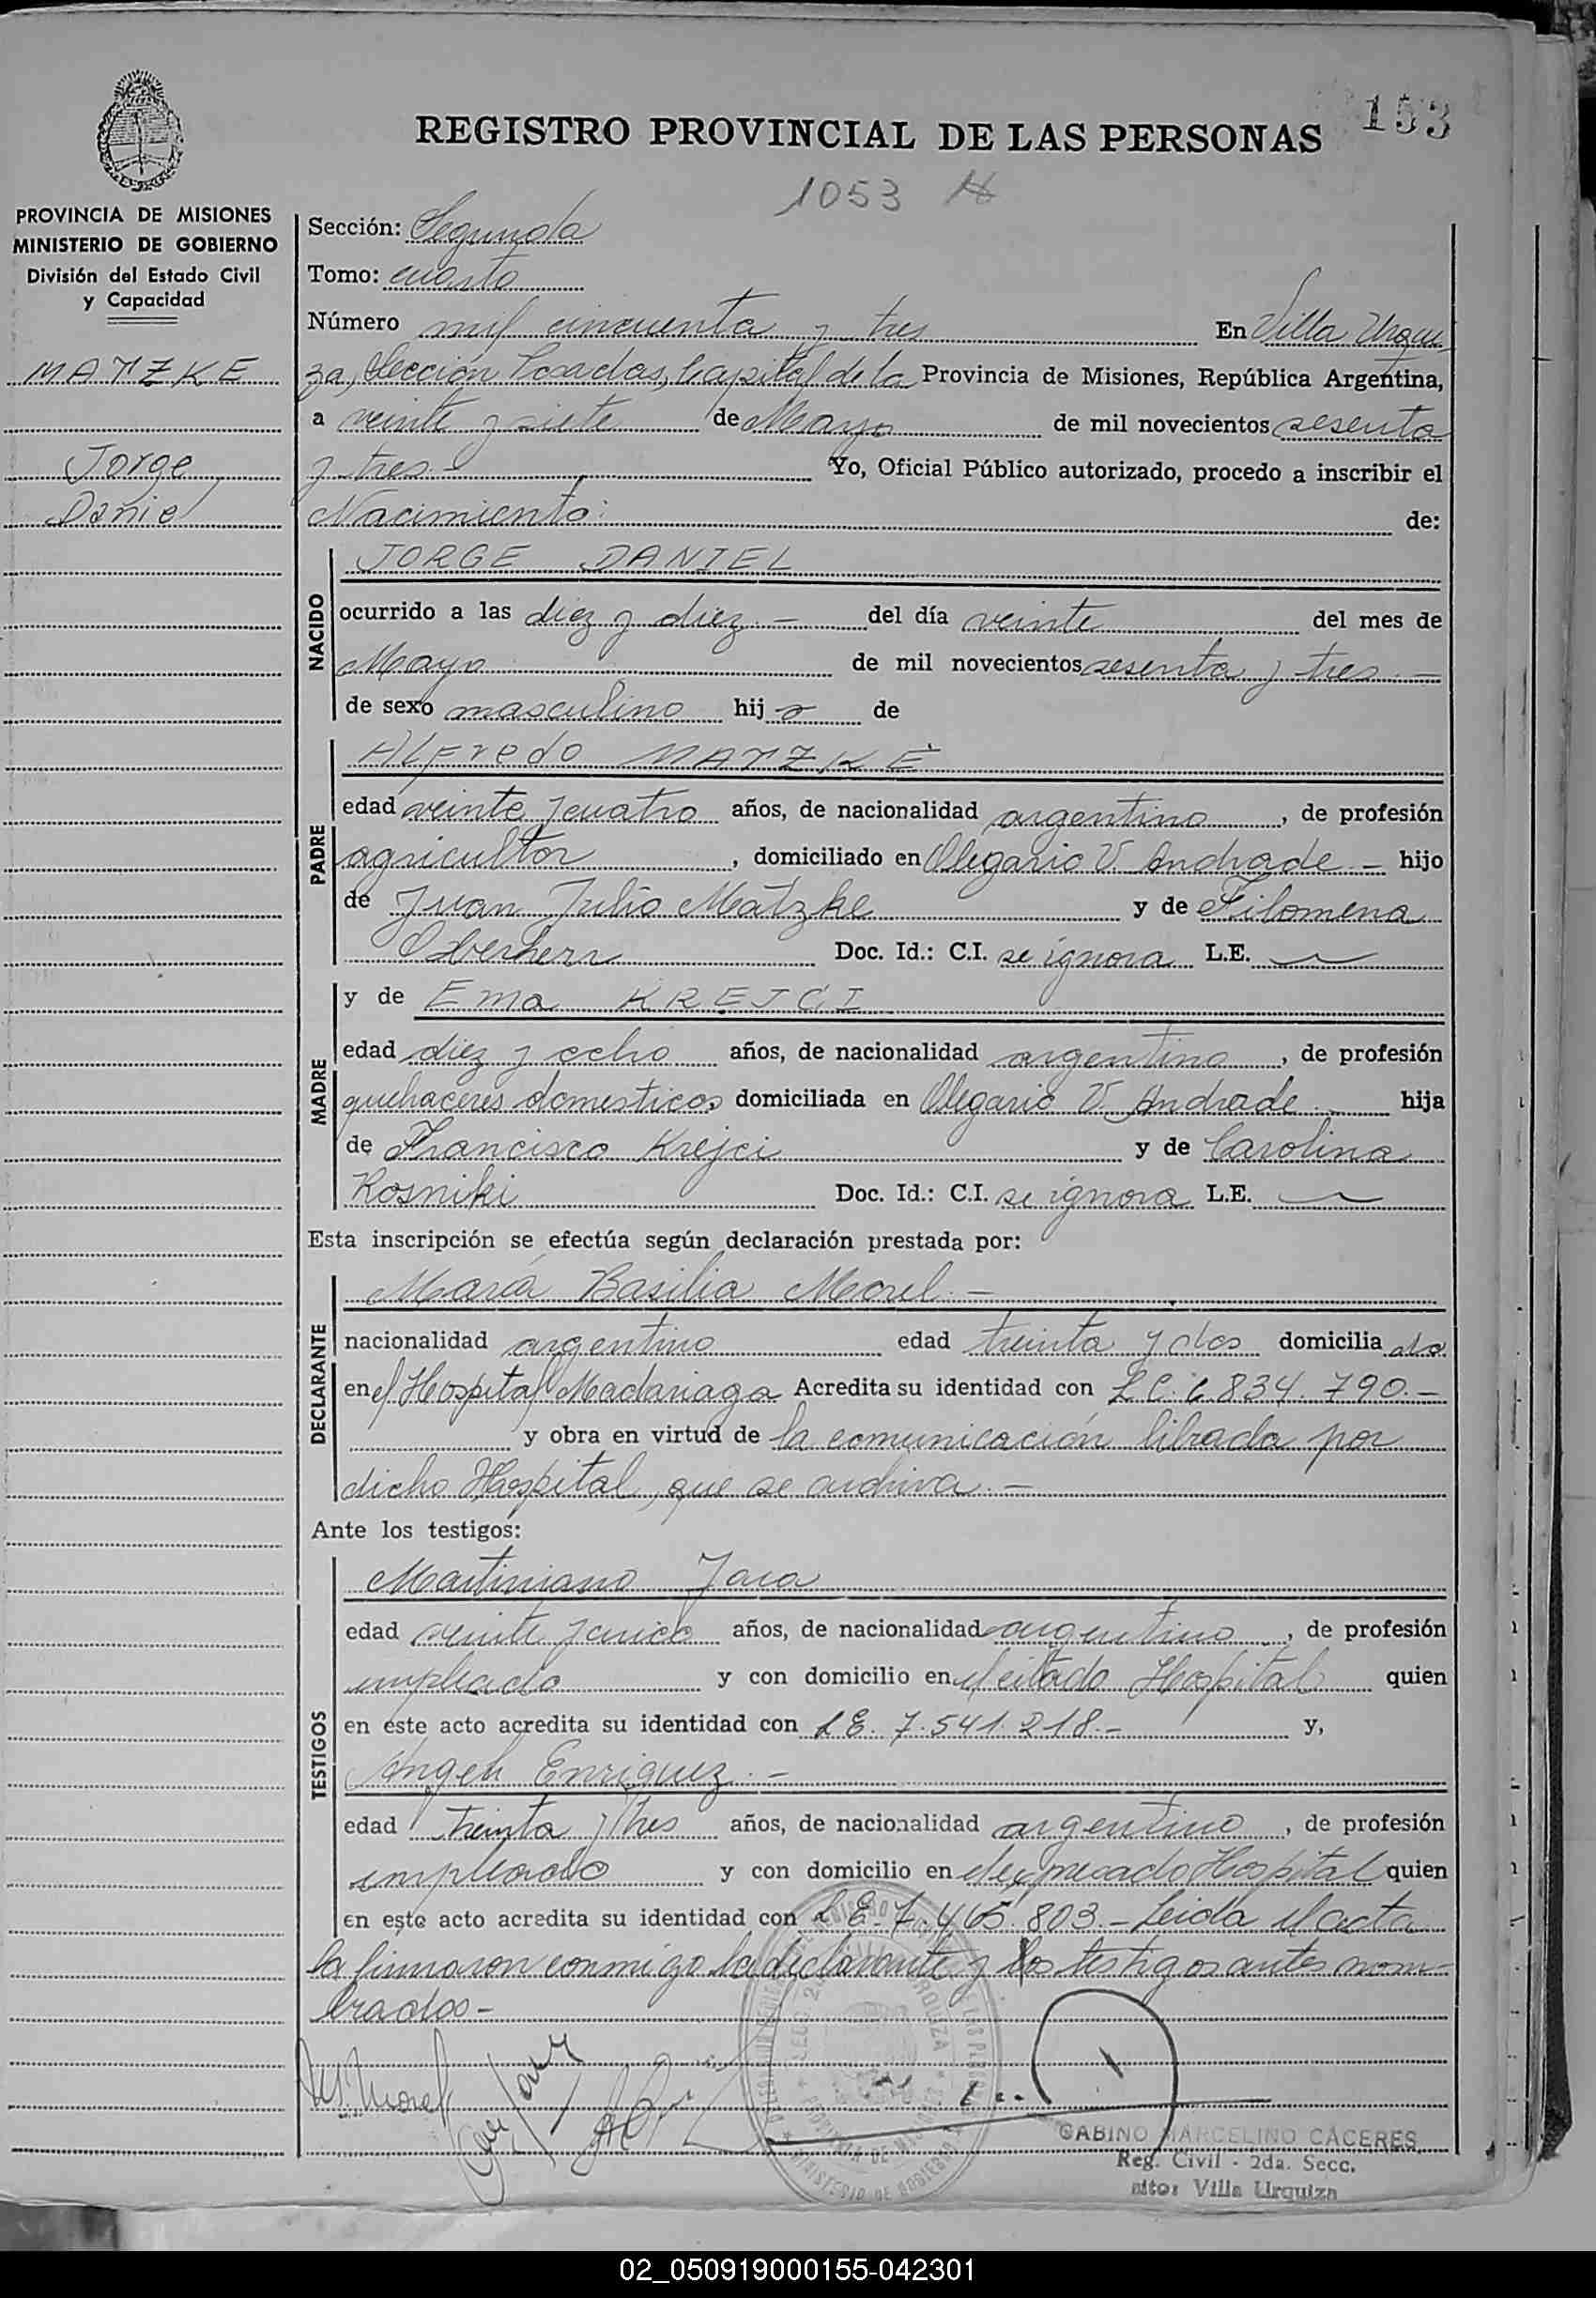 153
REGISTRO PROVINCIAL DE LAS PERSONAS
1053
PROVINCIA DE MISIONES
MINISTERIO DE GOBIERNO
División del Estado Civil
y Capacidad
MATZKE
Jorge
Daniel
Sección: Segunda
Tomo: cuarto
Número mil cincuenta y tres En Villa Urqui
za, Sección Posadas, Capital de la Provincia de Misiones, República Argentina,
a veinte y siete de Mayo de mil novecientos sesenta
y tres.- Yo, Oficial Público autorizado, procedo a inscribir el
Nacimiento: de:
NACIDO
JORGE DANIEL
ocurrido a las diez y diez.- del día veinte del mes de
Mayo de mil novecientos sesenta y tres.-
de sexo masculino hijo de
PADRE
Alfredo MATZKE
edad veinte y cuatro años, de nacionalidad argentino, de profesión
agricultor, domiciliado en Olegario V. Andrade.- hijo
de Juan Julio Matzke y de Filomena
Oberherr Doc. Id.: C.I. se ignora L.E.
MADRE
y de Ema KREJCI
edad diez y ocho años, de nacionalidad argentina, de profesión
quehaceres domesticos domiciliada en Olegario V. Andrade.- hija
de Francisco Krejci y de Carolina
Rosniki Doc. Id.: C.I. se ignora L.E.
Esta inscripción se efectúa según declaración prestada por:
DECLARANTE
María Basilia Morel.-
nacionalidad argentina edad treinta y dos domiciliada
en el Hospital Madariaga Acredita su identidad con L.C. 6.834.790.-
y obra en virtud de la comunicación librada por
dicho Hospital, que se archiva.-
Ante los testigos:
TESTIGOS
Martiniano Jara
edad veinte y cinco años, de nacionalidad argentino, de profesión
empleado y con domicilio en el citado Hospital quien
en este acto acredita su identidad con L.E. 7.541.218.- y,
Angel Enriquez.-
edad treinta y tres años, de nacionalidad argentino, de profesión
empleado y con domicilio en el expresado Hospital quien
en este acto acredita su identidad con L.E. 7.465.803.- Leida el acta
la firmaron conmigo la declarante y los testigos antes nom-
brados-
M. B. Morel
GABINO MARCELINO CACERES
Reg. Civil - 2da. Secc.
Villa Urquiza
02_050919000155-042301